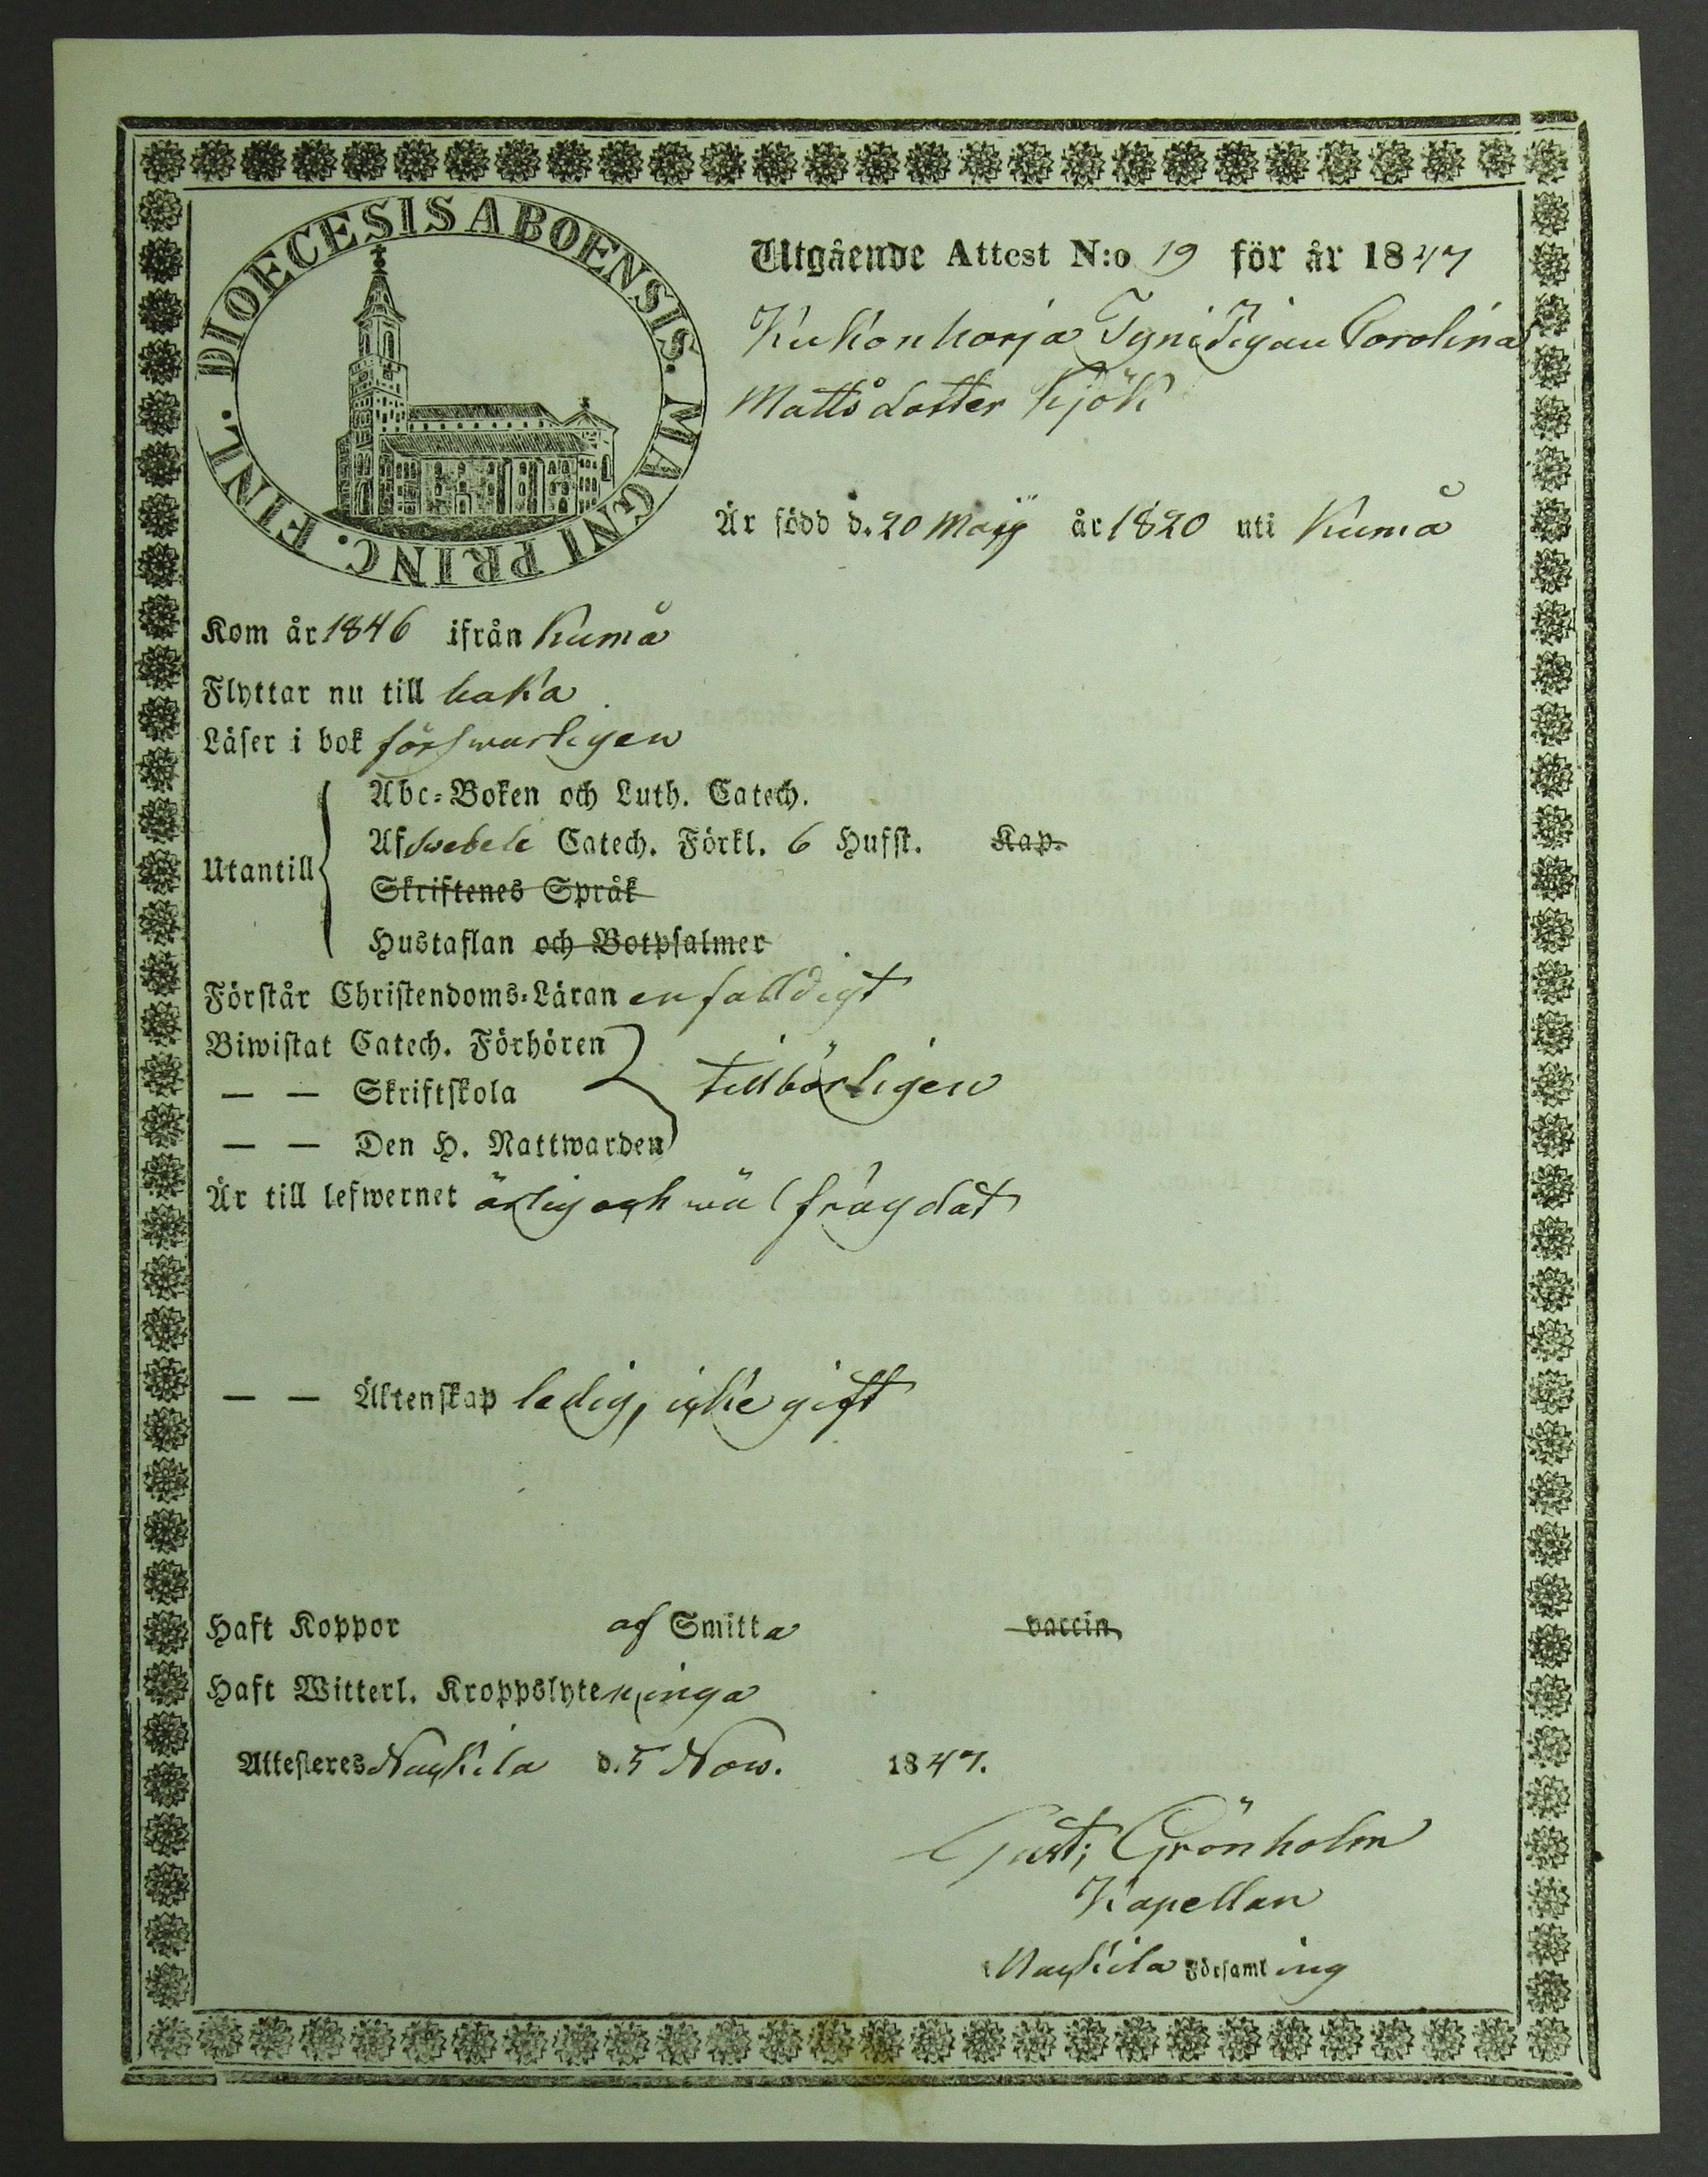 DIOECESIS ABOENSIS. MAGNI PRINC. FINL.
Utgående Attest N:o 19 för år 1847
Kukonharja Pigan Carolina
Mattsdotter Kjök
Är född d. 20 Maij år 1820 uti Kumå
Kom år 1846 ifrån Kumå
Flyttar nu till baka
Läser i bok försvarligen
Utantill
Abc-Boken och Luth. Catech.
Af Swebele Catech. Förkl. 6 Hufst. Kap.
Skriftenes Språk
Hustaflan och Botpsalmer
Förstår Christendoms-Läran enfalldigt
Biwistat Catech. Förhören
— — Skriftskola tillbörligen
— — Den H. Nattwarden
Är till lefwernet ärlig och wäl frägdat
— — Äktenskap ledig, icke gift
Haft Koppor af Smitta vaccin.
Haft Witterl. Kroppslyten, inga
Attesteres Nackila d. 5 Now. 1847.
Gust: Grönholm
Kapellan
i Nackila Församling